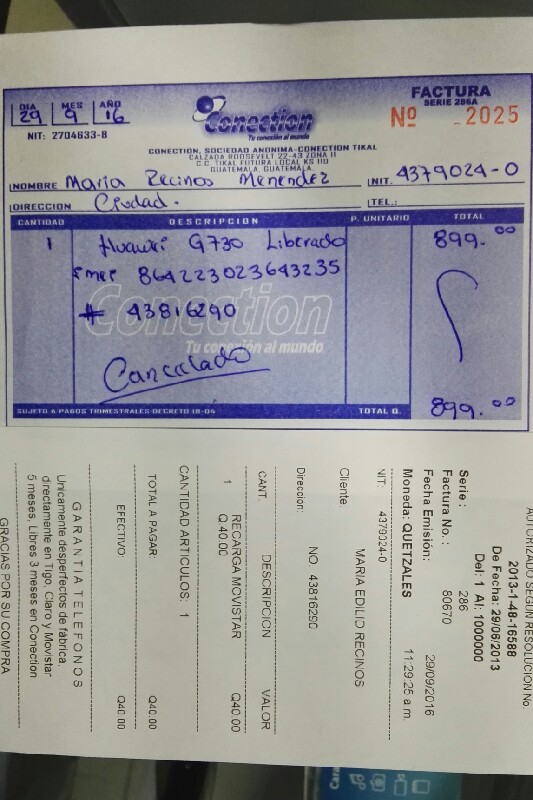 DIA MES AÑO
29 9 16
NIT: 2704633-8
Conection
Tu conexión al mundo
FACTURA
SERIE 286A
Nº 2025
CONECTION, SOCIEDAD ANONIMA-CONECTION TIKAL
CALZADA ROOSEVELT 22-43 ZONA 11
C.C. TIKAL FUTURA LOCAL KS 110
GUATEMALA, GUATEMALA.
NOMBRE Maria Recinos Menendez NIT. 4379024-0
DIRECCION Ciudad. TEL.:
CANTIDAD DESCRIPCION P. UNITARIO TOTAL
1 Huawei G730 Liberado 899.00
Emei 864223023643235
# 43816290
Conection
Tu conexión al mundo
Cancelado
SUJETO A PAGOS TRIMESTRALES DECRETO 18-04 TOTAL Q. 899.00
AUTORIZADO SEGUN RESOLUCION No.
2013-1-48-16588
De Fecha: 29/06/2013
Del: 1 Al: 1000000
Serie : 286
Factura No.: 80670
Fecha Emisión: 29/09/2016
Moneda: QUETZALES 11:29:25 a.m.
NIT: 4379024-0
Cliente MARIA EDILID RECINOS
Dirección: NO. 43816290
CANT. DESCRIPCION VALOR
1 RECARGA MOVISTAR Q40.00
Q 40.00
CANTIDAD ARTICULOS: 1
TOTAL A PAGAR: Q40.00
EFECTIVO: Q40.00
GARANTIA TELEFONOS
Unicamente desperfectos de fábrica.
directamente en Tigo, Claro y Movistar
5 meses, Libres 3 meses en Conection
GRACIAS POR SU COMPRA